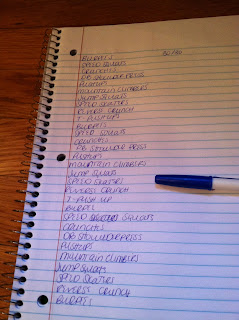 BURPEES 50/30
SPEED SQUATS
CRUNCHES
DB SHOULDER PRESS
PUSHUPS
MOUNTAIN CLIMBERS
JUMP SQUATS
SPEED SKATERS
REVERSE CRUNCH
T-PUSHUPS
BURPEES
SPEED SQUATS
CRUNCHES
DB SHOULDER PRESS
PUSHUPS
MOUNTAIN CLIMBERS
JUMP SQUATS
SPEED SKATERS
REVERSE CRUNCH
T-PUSH UP
BURPEES
SPEED SQUATS
CRUNCHES
DB SHOULDER PRESS
PUSHUPS
MOUNTAIN CLIMBERS
JUMP SQUATS
SPEED SKATERS
REVERSE CRUNCH
BURPEES